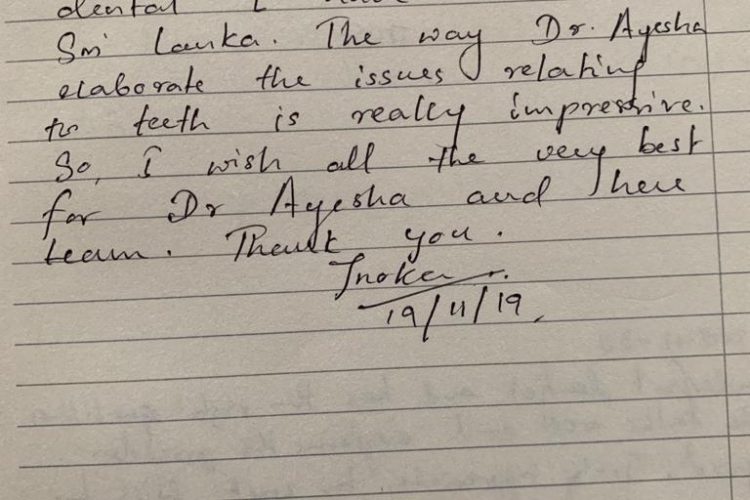 dental I
Sri Lanka. The way Dr. Ayesha
elaborate the issues relating
to teeth is really impressive.
So, I wish all the very best
for Dr Ayesha and here
team. Thank you.
Inoka
19/11/19